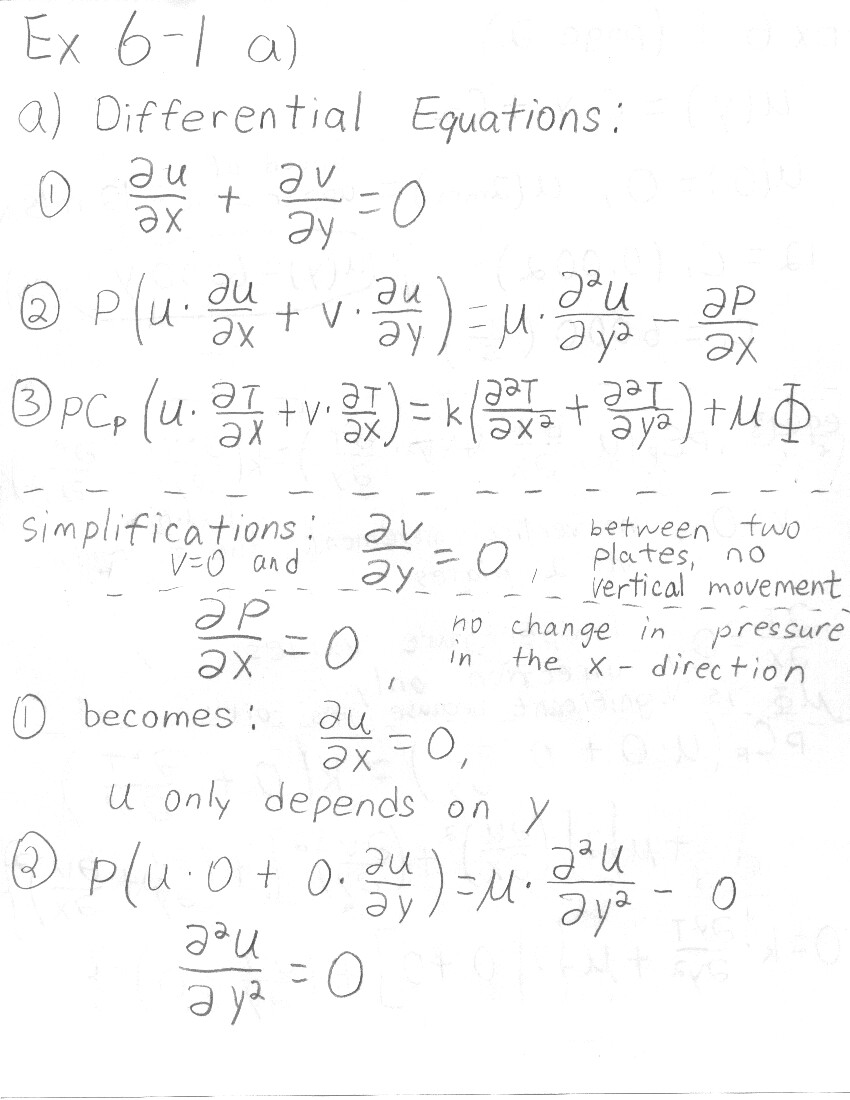 Ex 6-1 a)
a) Differential Equations:
① ∂u/∂x + ∂v/∂y = 0
② P(u · ∂u/∂x + v · ∂u/∂y) = μ · ∂²u/∂y² − ∂P/∂x
③ PCp (u · ∂T/∂x + v · ∂T/∂x) = k(∂²T/∂x² + ∂²T/∂y²) + μΦ
simplifications: v=0 and ∂v/∂y = 0, between two plates, no vertical movement
∂P/∂x = 0, no change in pressure in the x-direction
① becomes: ∂u/∂x = 0,
u only depends on y
② P(u · 0 + 0 · ∂u/∂y) = μ · ∂²u/∂y² − 0
∂²u/∂y² = 0